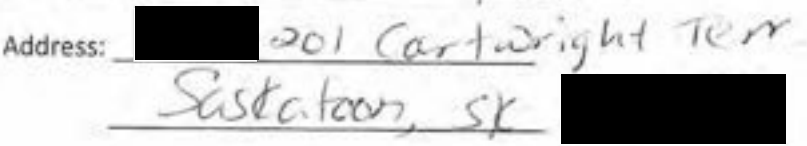 Address: 201 Cartwright Terr
Saskatoon, SK